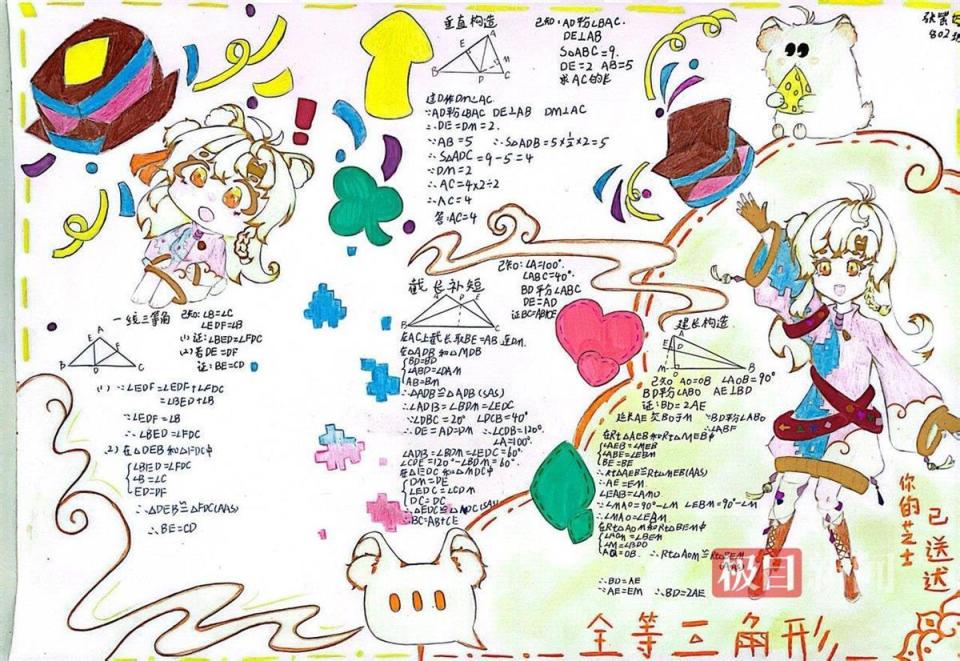 垂直构造
已知:AD平分∠BAC.
DE⊥AB
S△ABC=9.
DE=2 AB=5
求AC的长
过D作DM⊥AC.
∵AD平分∠BAC DE⊥AB DM⊥AC
∴DE=DM=2.
∵AB=5 ∴S△ADB=5×½×2=5
∴S△ADC=9-5=4
∵DM=2
∴AC=4×2÷2
∴AC=4
答:AC=4
802班
一线三等角
已知:∠B=∠C
∠EDF=∠B
(1)证:∠BED=∠FDC
(2)若DE=DF
证:BE=CD
(1)∵∠EDC=∠EDF+∠FDC
=∠BED+∠B
∵∠EDF=∠B
∴∠BED=∠FDC
2)在△DEB和△FDC中
∠BED=∠FDC
∠B=∠C
ED=DF
∴△DEB≌△FDC(AAS)
∴BE=CD
截长补短
已知:∠A=100°
∠ABC=40°
BD平分∠ABC
DE=AD
在△ADB和△MDB
BD=BD
AB=BM
∴△ADB≌△ADB(SAS)
∴∠ADB=∠BDM=∠EDC
∵∠DBC=20° ∠DCB=40°
∴DE=AD=DM ∴∠CDB=120°
∠A=100°
∠ADB=∠BDM=∠EDC=60°
∠CDE=120°-∠BDM=60°
在△EDC和△MDC中
DM=DE
∠EDC=∠CDM
DC=DC
∴BC=AB+CE
延长构造
已知 AO=OB ∠AOB=90°
BD平分∠ABO AE⊥BD
证:BD=2AE
延长AE交BO于M ∵BD平分∠ABO
在Rt△AEB和Rt△MEB中
∠AEB=∠MEB
∠ABE=∠EBM
BE=BE
∴Rt△AEB≌Rt△MEB(AAS)
∴AE=EM
∵∠MAO=90°-∠M ∠EBM=90°-∠M
∴∠MAO=∠EBM
AO=OB
∴BD=AE
∵AE=EM ∴BD=2AE
你的芝士
已送达
极目新闻
全等三角形